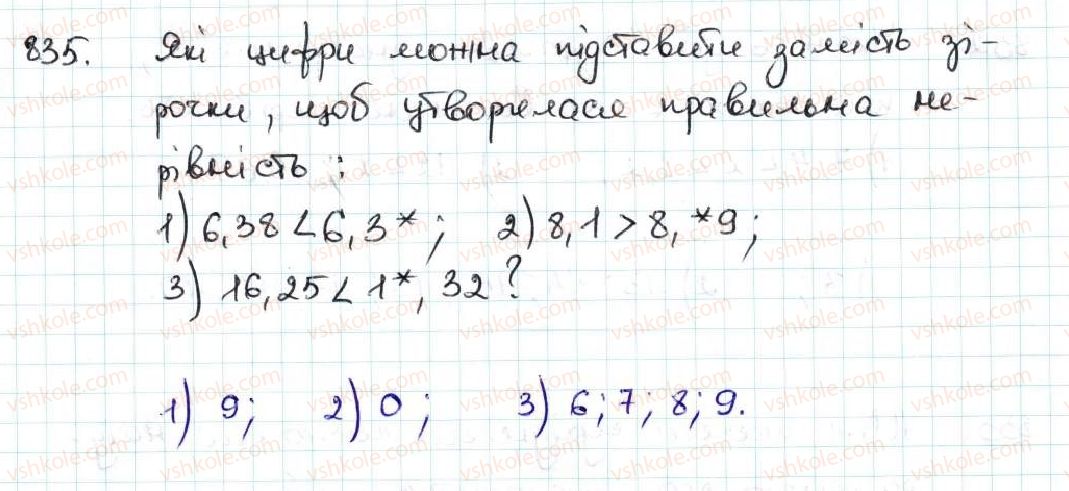 835. Які цифри можна підставити замість зі-
рочки, щоб утворилася правильна не-
рівність:
1) 6,38 < 6,3*; 2) 8,1 > 8,*9;
3) 16,25 < 1*,32?
1) 9; 2) 0; 3) 6; 7; 8; 9.